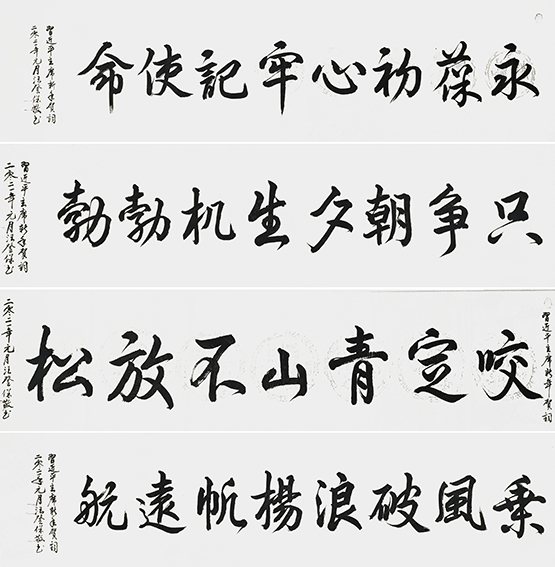 永葆初心牢記使命
習近平主席新年賀詞
二零二一年元月
只争朝夕生机勃勃
習近平主席新年賀詞
二零二一年元月
習近平主席新年賀詞
咬定青山不放松
二零二一年元月
乗風破浪楊帆遠航
習近平主席新年賀詞
二零二一年元月